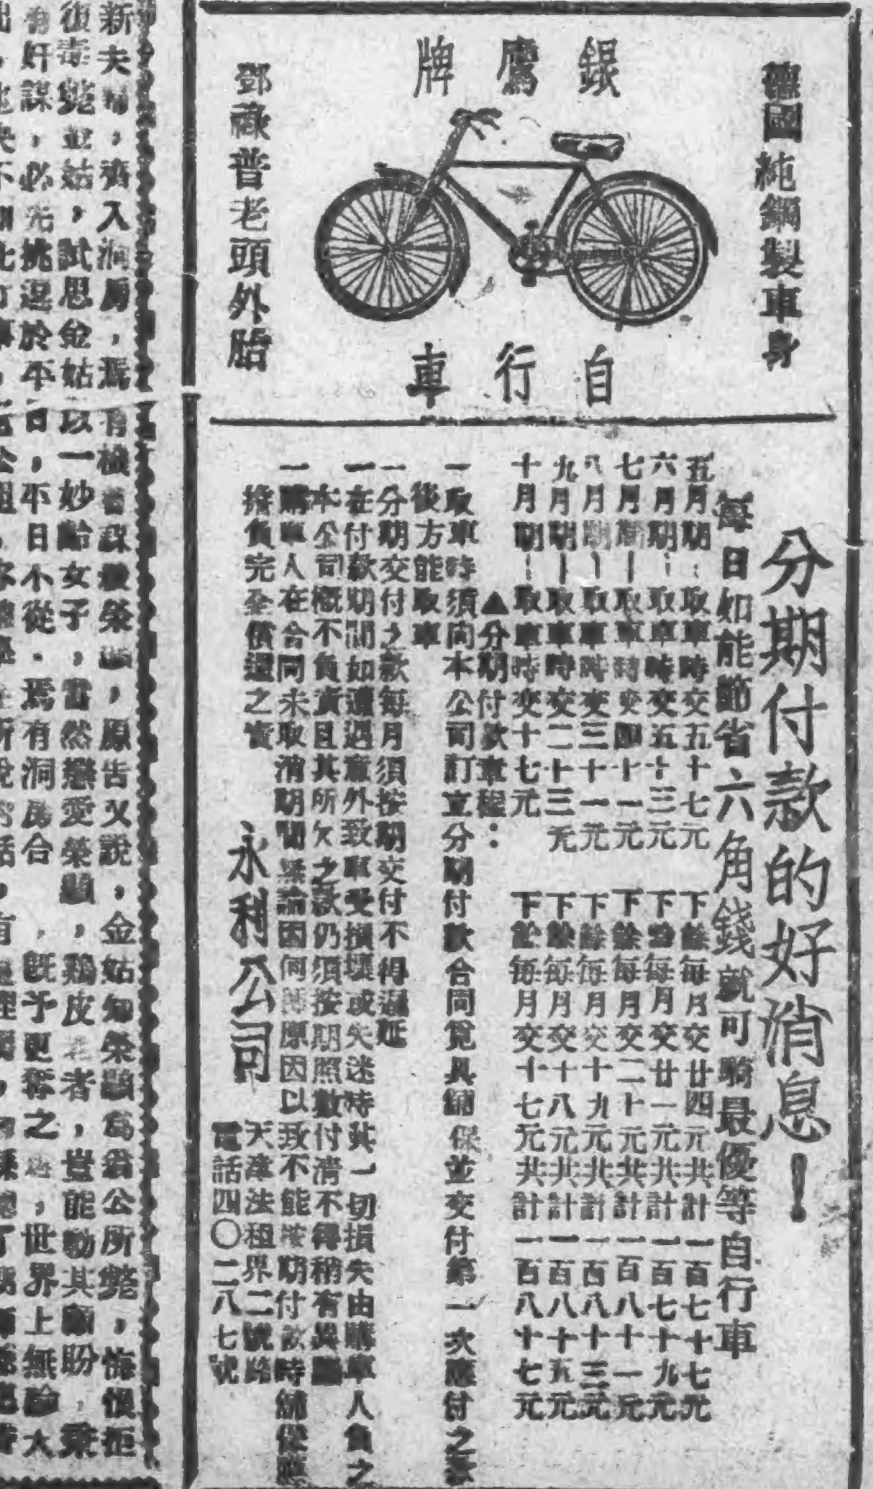 德國純鋼製車身
銀鷹牌
自行車
鄧祿普老頭外胎
分期付款的好消息！
每日如能節省六角錢就可騎最優等自行車
五月期—取車時交五十七元 下餘每月交廿四元共計一百七十七元
六月期—取車時交五十三元 下餘每月交廿一元共計一百七十九元
七月期—取車時交四十一元 下餘每月交二十元共計一百八十一元
八月期—取車時交三十一元 下餘每月交十九元共計一百八十三元
九月期—取車時交二十三元 下餘每月交十八元共計一百八十五元
十月期—取車時交十七元 下餘每月交十七元共計一百八十七元
▲分期付款章程：
一取車時須向本公司訂立分期付款合同覓具舖保並交付第一次應付之款
後方能取車
一分期交付之款每月須按期交付不得遲延
一在付款期間如遭遇意外致車受損壞或失迷時其一切損失由購車人負之
本公司概不負責且其所欠之款仍須按期照數付清不得稍有異議
一購車人在合同未取消期間無論因何原因以致不能按期付款時舖保應
擔負完全償還之責
永利公司
天津法租界二號路
電話四〇二八七號
新夫婦，齊入洞房，焉有機會謀殺榮顯，原告又說，金姑知榮顯為翁公所斃，悔恨拒
復毒斃金姑，試思金姑以一妙齡女子，當然戀愛榮顯，鷄皮老者，豈能動其顧盼，乘
奸謀，必先挑逗於平日，平日不從，焉有洞房合，既予更奪之，世界上無論大